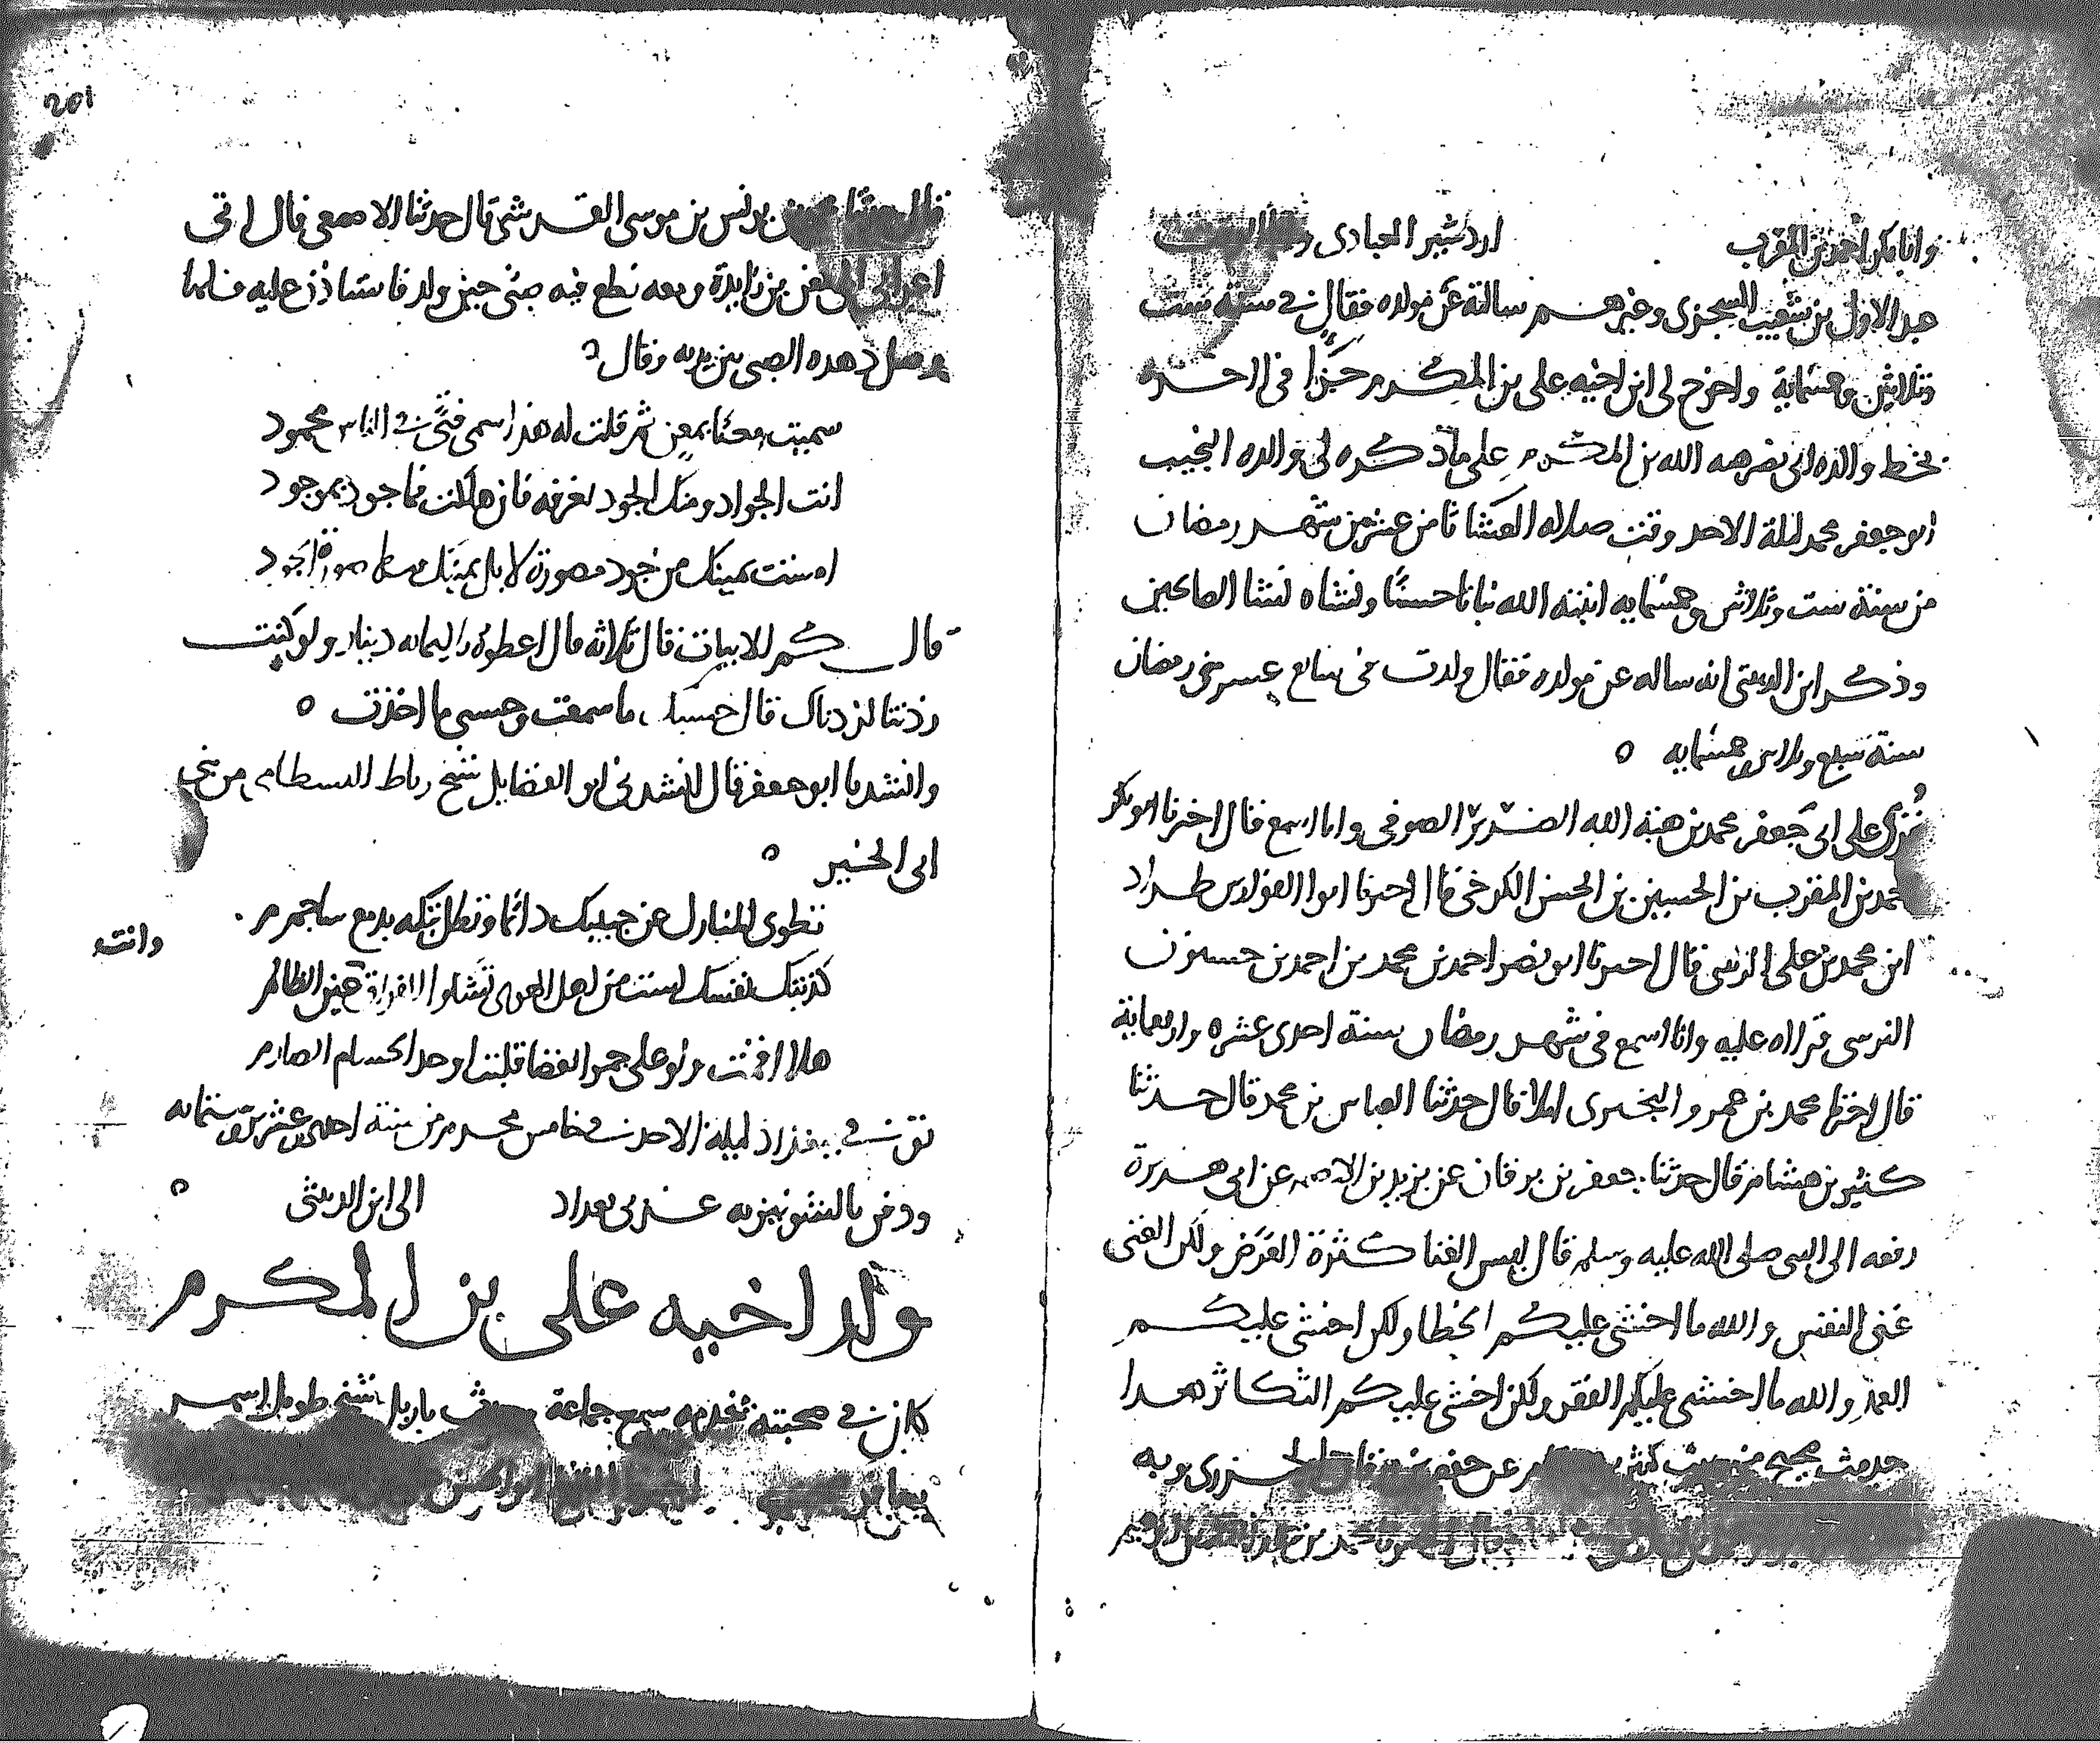 وابا بكر احمد بن المقرب اردشير العبادى
عبد الاول بن شعيب السجزى وغيرهم سالته عن مولده فقال في سنة ست
وثلاثين وخمسماية واخرج لى ابن اخيه على بن المكرم جزءا فى اخره
بخط والده ابى نصر هبة الله بن المكرم على ما ذكره لى والده النجيب
ابو جعفر محمد ليلة الاحد وقت صلاه العشا ثامن عشر من شهر رمضان
من سنة ست وثلاثين وخمسمايه انبته الله نباتا حسنا ونشاه نشا الصالحين
وذكر ابن الدبيثى انه ساله عن مولده فقال ولدت فى سابع عشر من رمضان
سنة سبع وثلاثين وخمسمايه ه
قرى على ابى جعفر محمد بن هبة الله الضرير الصوفى وانا اسمع قال اخبرنا ابو بكر
احمد بن المقرب بن الحسين بن الحسن الكرخى قال اخبرنا ابو الفوارس طراد
ابن محمد بن على الزينبى قال اخبرنا ابو نصر احمد بن محمد بن احمد بن حسنون
النرسى قراه عليه وانا اسمع فى شهر رمضان سنة احدى عشره واربعماية
قال اخبرنا محمد بن عمرو البخترى املا قال حدثنا العباس بن محمد قال حدثنا
كثير بن هشام قال حدثنا جعفر بن برقان عن يزيد بن الاصم عن ابى هريرة
رفعه الى النبى صلى الله عليه وسلم قال ليس الغنا كثرة العرض ولكن الغنى
غنى النفس والله ما اخشى عليكم الخطا ولكن اخشى عليكم
العمد والله ما اخشى عليكم الفقر ولكن اخشى عليكم التكاثر هذا
حديث صحيح من حديث كثير عن جعفر بن برقان الجزرى وبه
201
قال حدثنا محمد بن يونس بن موسى القرشى قال حدثنا الاصمعى قال اتى
اعرابى الى معن بن زايدة ومعه نطع فيه صبى حين ولد فاستاذن عليه فلما
وصل دهده الصبى بين يديه وقال
سميت معنا بمعن ثم قلت له هذا اسمى فتى في الناس محمود
انت الجواد ومنك الجود نعرفه فان هلكت فما جود بموجود
امست يمينك من جود مصورة لا بل يمينك منها صورة الجود
قال كم الابيات قال ثلاثه قال اعطوه ثلثمايه دينار ولو كنت
زدتنا لزدناك قال حسبك ما سمعت وحسبى ما اخذت ه
وانشدنا ابو جعفر قال انشدنى ابو الفضايل شيخ رباط البسطامى من بنى
ابى الخير ه
تطوى المنازل عن حبيبك دائما وتظل تبكه بدمع ساجم
وانت
كذبتك نفسك لست من اهل الهوى تشكو الفراق وانت عين الظالم
هلا اقمت ولو على جمر الغضا قلبت او حد الحسام الصارم
توفى في بغداد ليلة الاحد في خامس محرم من سنة احدى وعشرين وستمايه
ودفن بالشونيزيه غربى بغداد الى ابن الدبيثى ه
ولد اخيه على بن المكرم
كان في صحبته يخدمه سمع جماعة باربل شيخ طويل اسمر